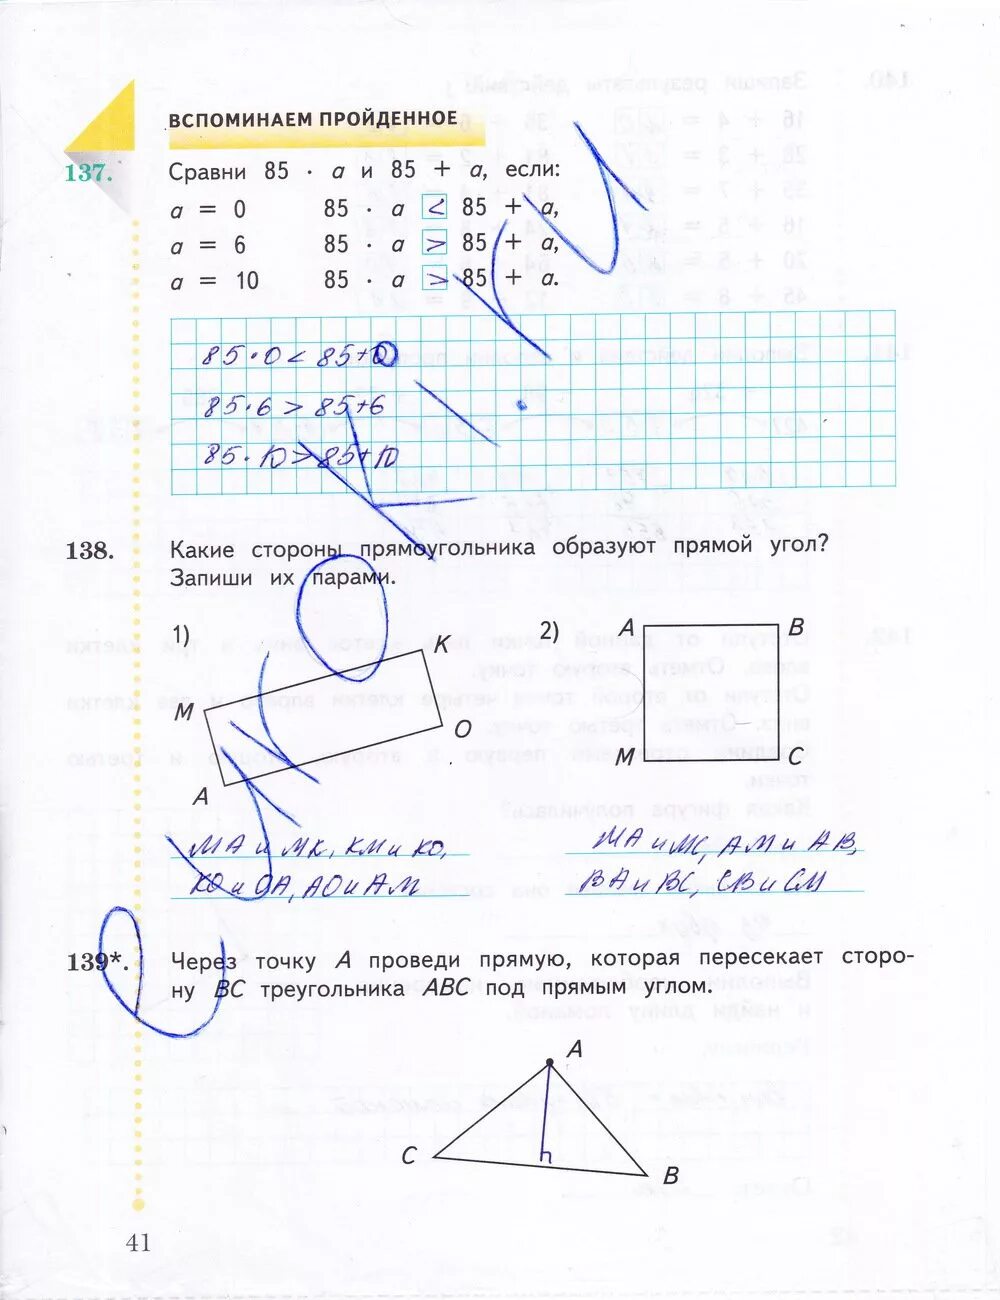 ВСПОМИНАЕМ ПРОЙДЕННОЕ
137. Сравни 85 · a и 85 + a, если:
a = 0 85 · a < 85 + a,
a = 6 85 · a > 85 + a,
a = 10 85 · a > 85 + a.
85·0 < 85+0
85·6 > 85+6
85·10 > 85+10
138. Какие стороны прямоугольника образуют прямой угол?
Запиши их парами.
1) 2)
K
M
O
A
A B
M C
МА и МК, КМ и КО,
КО и ОА, АО и АМ
МА и МС, АМ и АВ,
ВА и ВС, СВ и СМ
139*. Через точку A проведи прямую, которая пересекает сторо-
ну BC треугольника ABC под прямым углом.
A
C
B
41